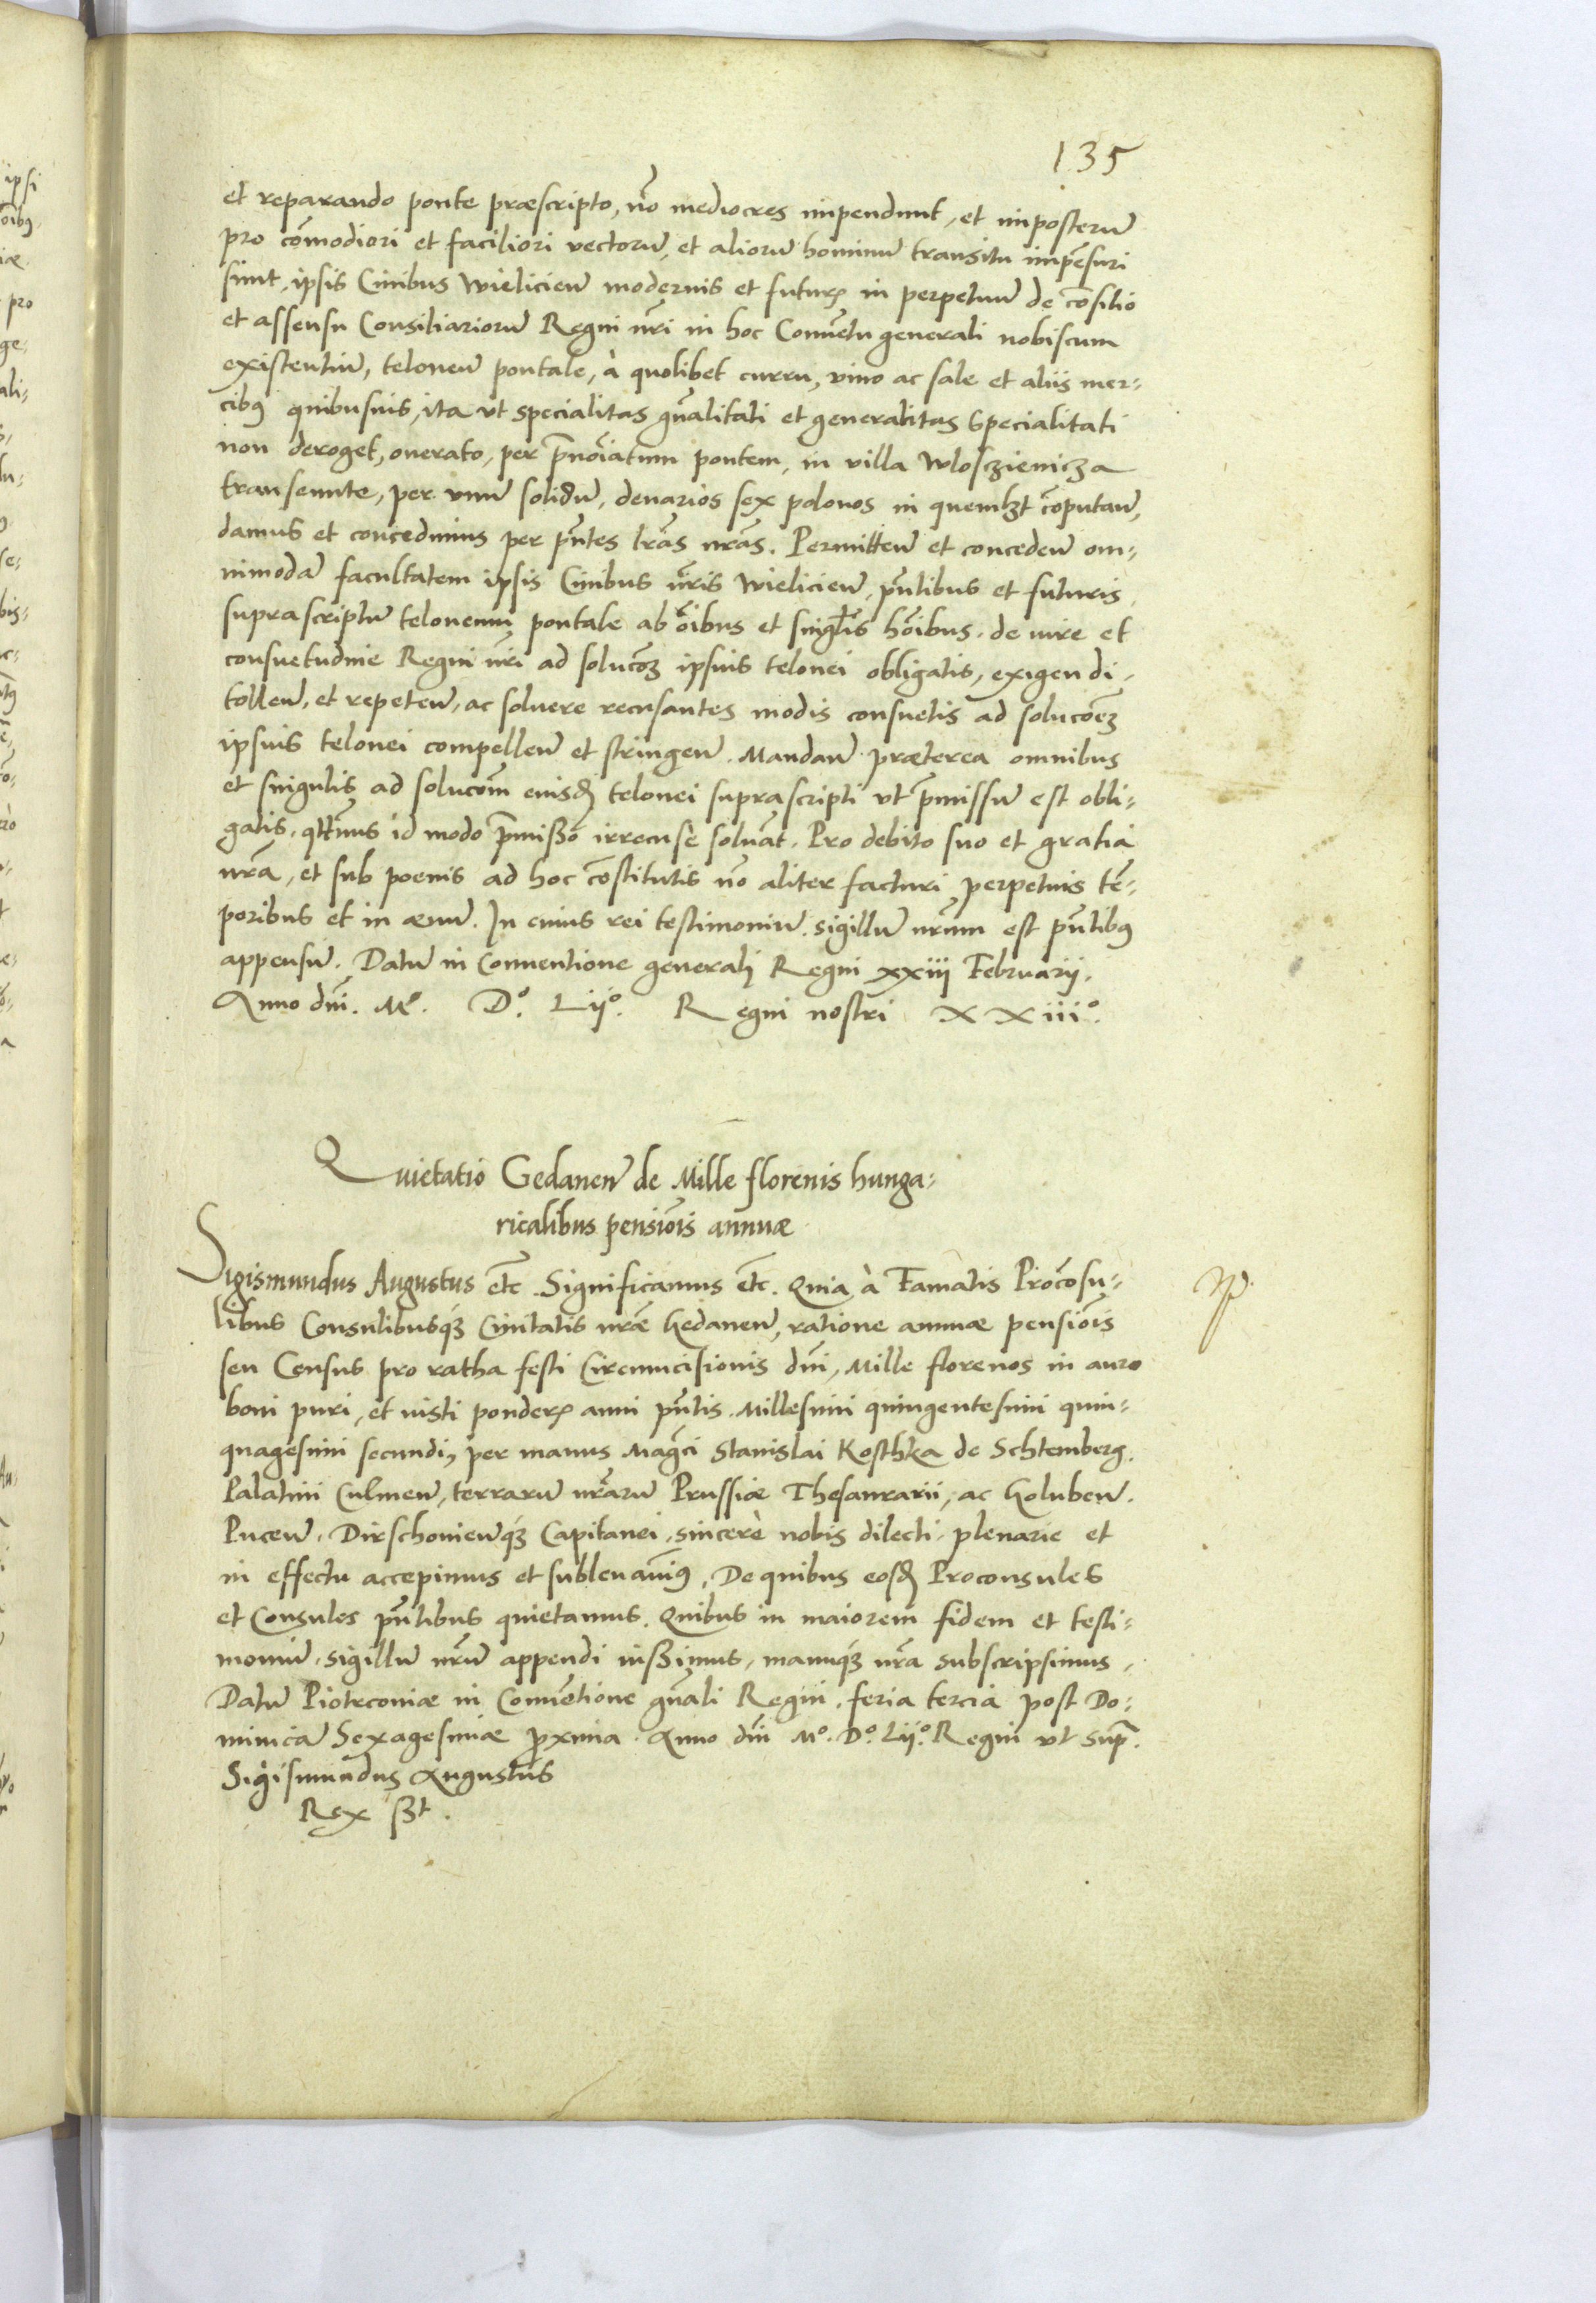 135
et reparando ponte præscripto, nõ mediocres impendunt, et imposterũ
pro cõmodiori et faciliori vectorũ, et aliorũ hominũ transitu impẽsuri
sunt, ipsis Ciuibus Wielicieñ modernis et futurꝭ in perpetuũ de cõsilio
et assensu Consiliariorũ Regni nr̃i in hoc Conuẽtu generali nobiscum
existentiũ, teloneũ pontale, à quolibet curru, vino ac sale et aliis mer-
cibꝰ quibusuis, ita vt specialitas gñalitati et generalitas specialitati
non deroget, onerato, per p̃noĩatum pontem, in villa Wlosczienicza
transeunte, per vnũ solidũ, denarios sex polonos in quemlꝫt cõputañ,
damus et concedimus per pñtes lr̃as nr̃as. Permitteñ et concedeñ om-
nimodã facultatem ipsis Ciuibus nr̃is Wielicieñ, pñtibus et futuris,
suprascriptũ teloneum pontale ab oĩbus et singl̃is hoĩbus, de iure et
consuetudine Regni nr̃i ad solucõꝫ ipsius telonei obligatis, exigendi,
tolleñ, et repeteñ, ac soluere recusantes modis consuetis ad solucoẽꝫ
ipsius telonei compelleñ et stringeñ. Mandañ præterea omnibus
et singulis ad solucõm eiusdꝭ telonei suprascripti vt p̃missũ est obli-
gatis, qt̃inus id modo p̃missõ irrecusè soluãt. Pro debito suo et gratia
nr̃a, et sub poenis ad hoc cõstitutis nõ aliter facturi, perpetuis tẽ-
poribus et in æuũ. In cuius rei testimoniũ sigillũ nr̃um est pñtibꝰ
appensũ. Datũ in Conuentione generali Regni xxiii Februarij.
Anno dñi. Mº. Dº. Lijº. Regni nostri XXiiiº.
Quietatio Gedaneñ de Mille florenis hunga-
ricalibus pensiõis annuæ
Sigismundus Augustus etc̃. Significamus etc̃. Quia à Famatis Procõsu-
libus Consulibusqꝫ Ciuitatis nr̃æ Gedaneñ, ratione annuæ pensiõis
seu Census pro ratha festi Circumcisionis dñi, Mille florenos in auro
boni puri, et iusti ponderꝭ anni pñtis Millesimi quingentesimi quin-
quagesimi secundi, per manus Mag̃ci Stanislai Kosthka de Schtemberg,
Palatini Culmeñ, terrarũ nr̃arũ Prussiæ Thesaurarii, ac Golubeñ.
Puceñ. Dirschouieñqꝫ Capitanei, sincerè nobis dilecti, plenarie et
in effectu accepimus et subleuauimꝰ, De quibus eosdꝭ Proconsules
et Consules pñtibus quietamus. Quibus in maiorem fidem et testi-
moniũ, sigillũ nr̃ũ appendi iussimus, manuqꝫ nr̃a subscripsimus,
Datũ Piotrconiæ in Conuẽtione gñali Regni, feria tercia post Do-
minicã Sexagesimæ proxima. Anno dñi Mº. Dº. Lijº. Regni vt supr̃.
Sigismundus Augustus
Rex sst.